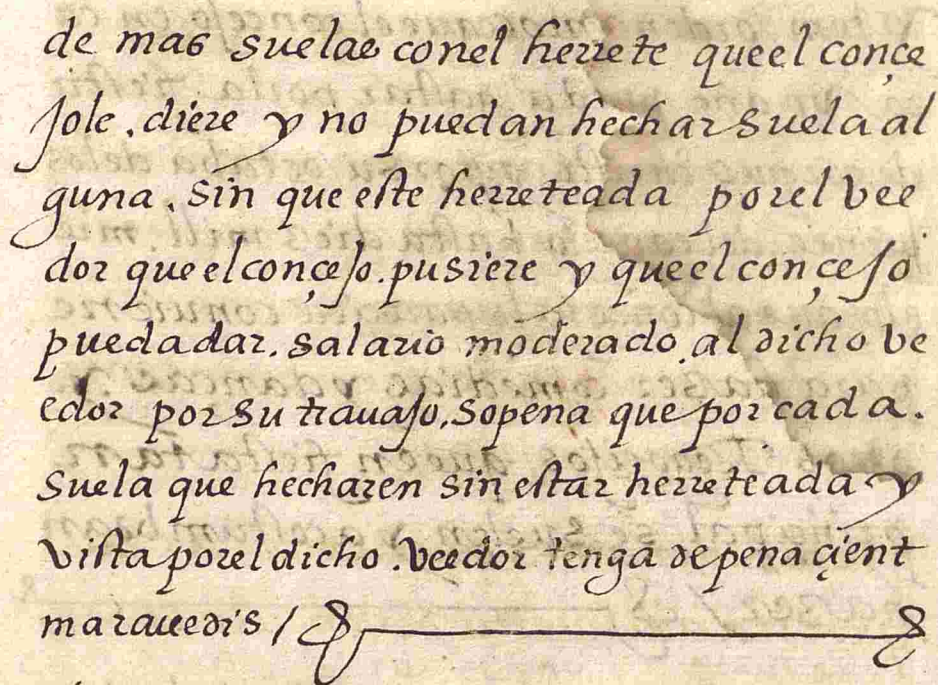 de mas suelas conel herrete queel conçe
jole . diere y no puedan hechar suela al
guna . sin que este herreteada porel vee
dor queelconçejo . pusiere y queelconçejo
puedadar . salario moderado . al dicho ve
edor por su trauajo . sopena que por cada .
suela que hecharen sin estar herreteada y
vista porel dicho . veedor tenga de pena çient
marauedis /